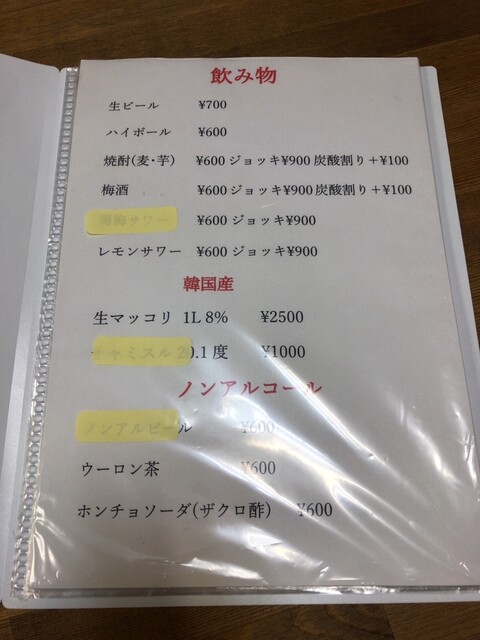 飲み物
生ビール ¥700
ハイボール ¥600
焼酎(麦・芋) ¥600 ジョッキ¥900 炭酸割り+¥100
梅酒 ¥600 ジョッキ¥900 炭酸割り+¥100
サワー ¥600 ジョッキ¥900
レモンサワー ¥600 ジョッキ¥900
韓国産
生マッコリ 1L 8% ¥2500
チャミスル 20.1度 ¥1000
ノンアルコール
ノンアルビール ¥600
ウーロン茶 ¥600
ホンチョソーダ(ザクロ酢) ¥600